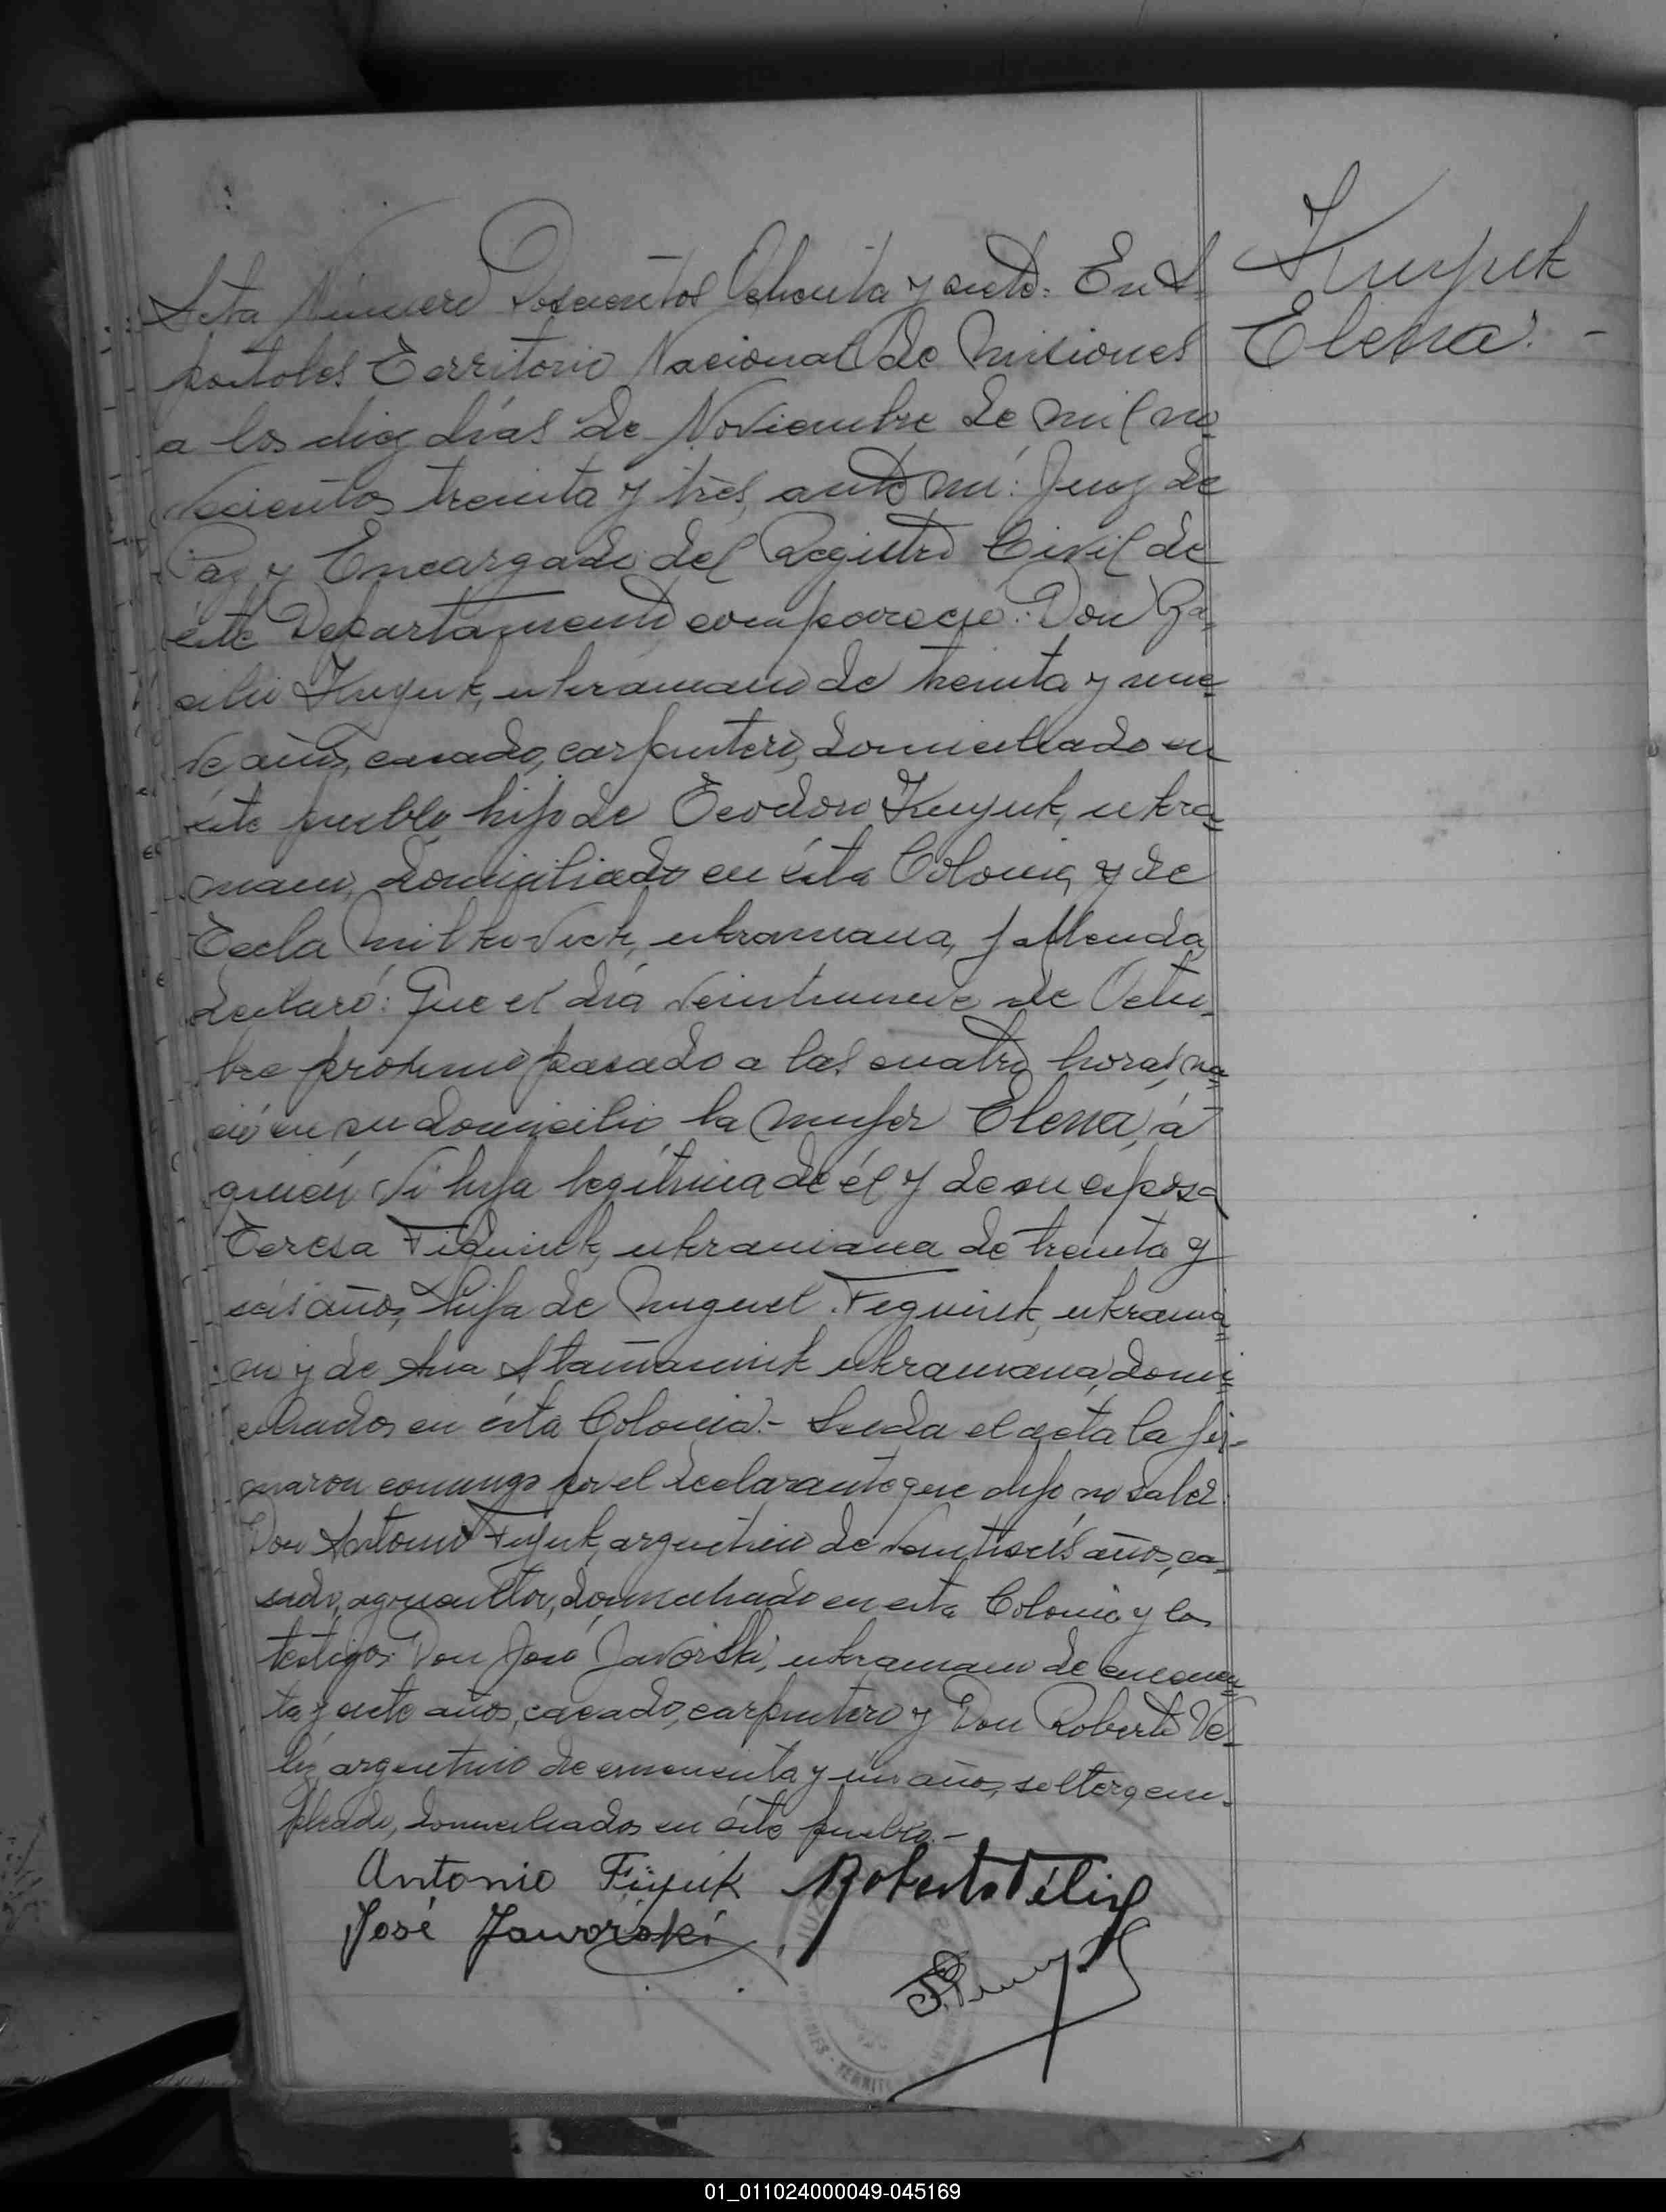 Kuyuk
Elena. -
Acta Número Doscientos Ochenta y siete = En A-
póstoles Territorio Nacional de Misiones
a los diez días de Noviembre de mil no-
vecientos treinta y tres, ante mí: Juez de
Paz y Encargado del Registro Civil de
éste Departamento, compareció: Don Ba-
silio Kuyuk, ukraniano de treinta y nue-
ve años, casado, carpintero, domiciliado en
éste pueblo hijo de Teodoro Kuyuk, ukra=
niano, domiciliado en ésta Colonia, y de
Tecla ukraniana, fallecida,
declaró: Que el día veintinueve de Octu-
bre próximo pasado a las cuatro horas, na=
ció en su domicilio la mujer Elena, á
quién vi hija legítima de él y de su esposa
Teresa ukraniana de treinta y
seis años, hija de Miguel ukrania=
no y de Ana ukraniana, domi=
ciliados en ésta Colonia.- Leida el acta la fir-
maron conmigo por el declarante que dijo no saber:
Don Antonio Fuyuk, argentino de veintiseis años, ca-
sado, agricultor, domiciliado en esta Colonia y los
testigos Don José Javorski, ukraniano de cincuen=
ta y siete años, casado, carpintero y Don Roberto Ve-
liz, argentino de cincuenta y un años, soltero, em-
pleado, domiciliados en éste pueblo.-
Antonio Fuyuk Roberto Véliz
José Jaworski
01_011024000049-045169